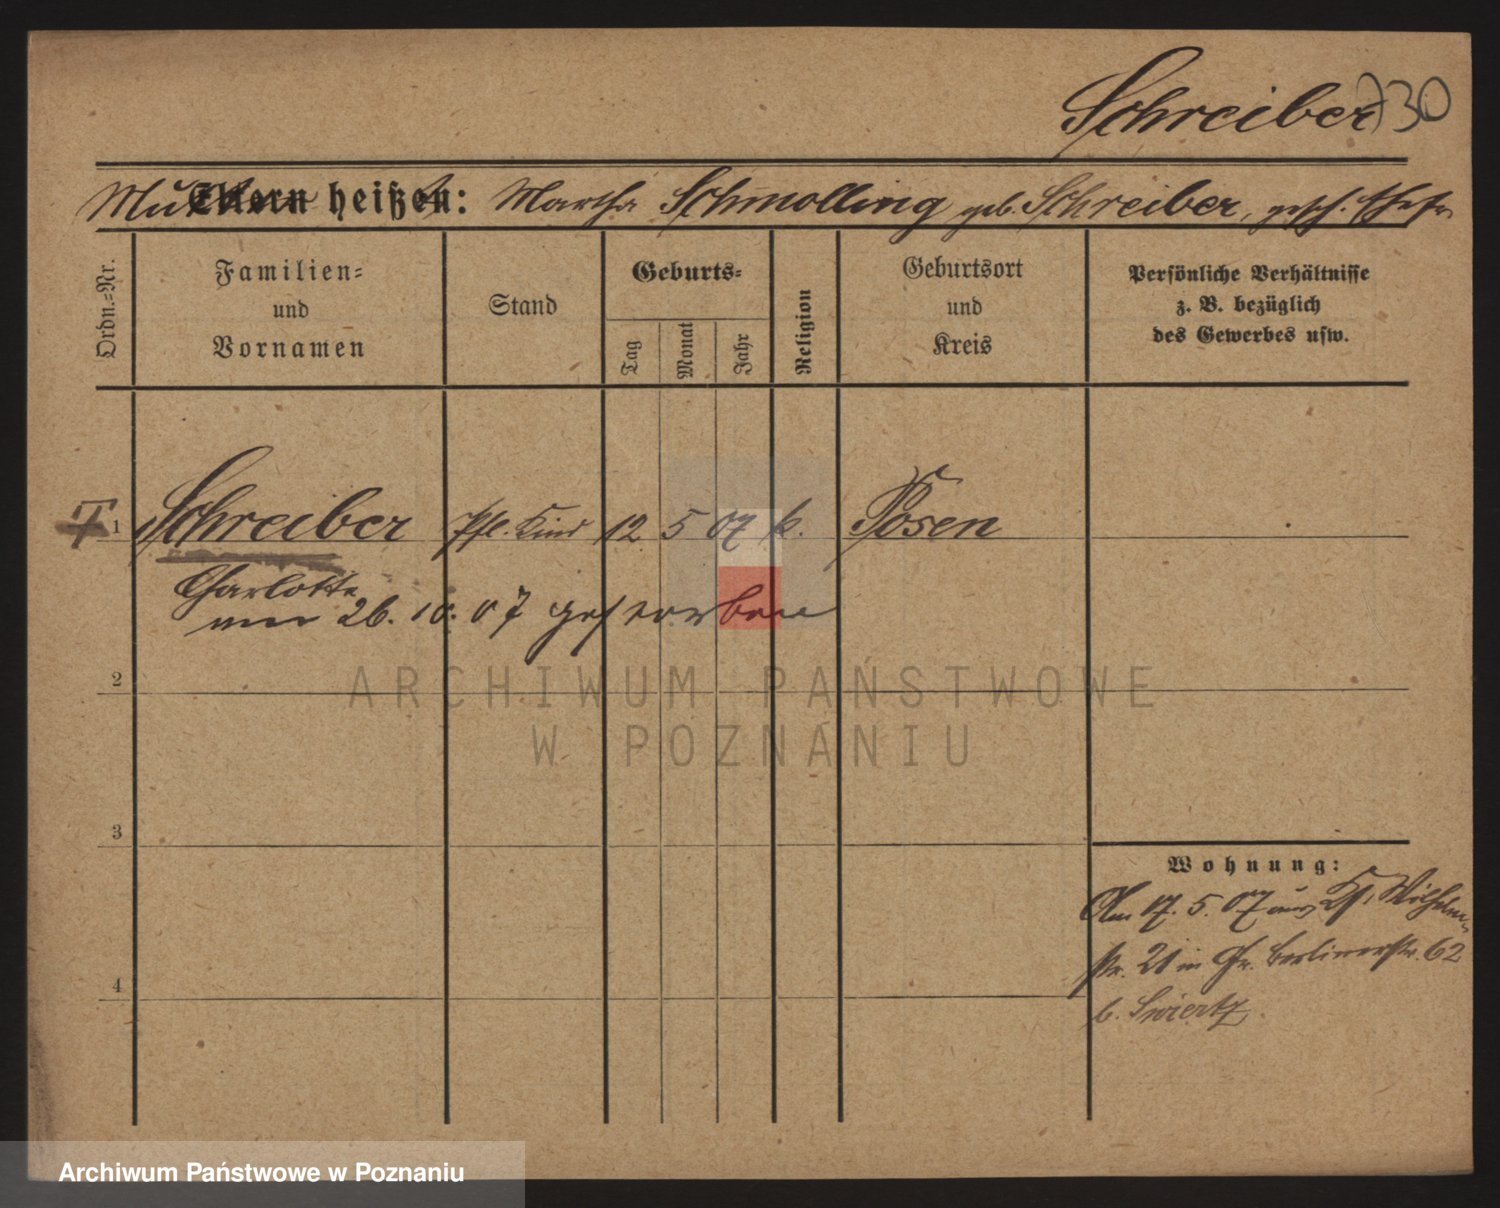 Schreiber 730
Mutter heißt: Martha Schmolling geb. Schreiber, gesch. Ehefr
Ordn.=Nr.
Familien=
und
Vornamen
Stand
Geburts=
Tag
Monat
Jahr
Religion
Geburtsort
und
Kreis
Persönliche Verhältnisse
z. B. bezüglich
des Gewerbes usw.
1 Schreiber Pfl. Kind 12 5 07 k. Posen
Charlotte
am 26. 10. 07 gestorben
2
3
4
Wohnung:
Am 17. 5. 07 aus Kg. Wilhelm-
str. 21 in Gr. Berlinerstr. 62
b. Swiertz
ARCHIWUM PAŃSTWOWE
W POZNANIU
Archiwum Państwowe w Poznaniu